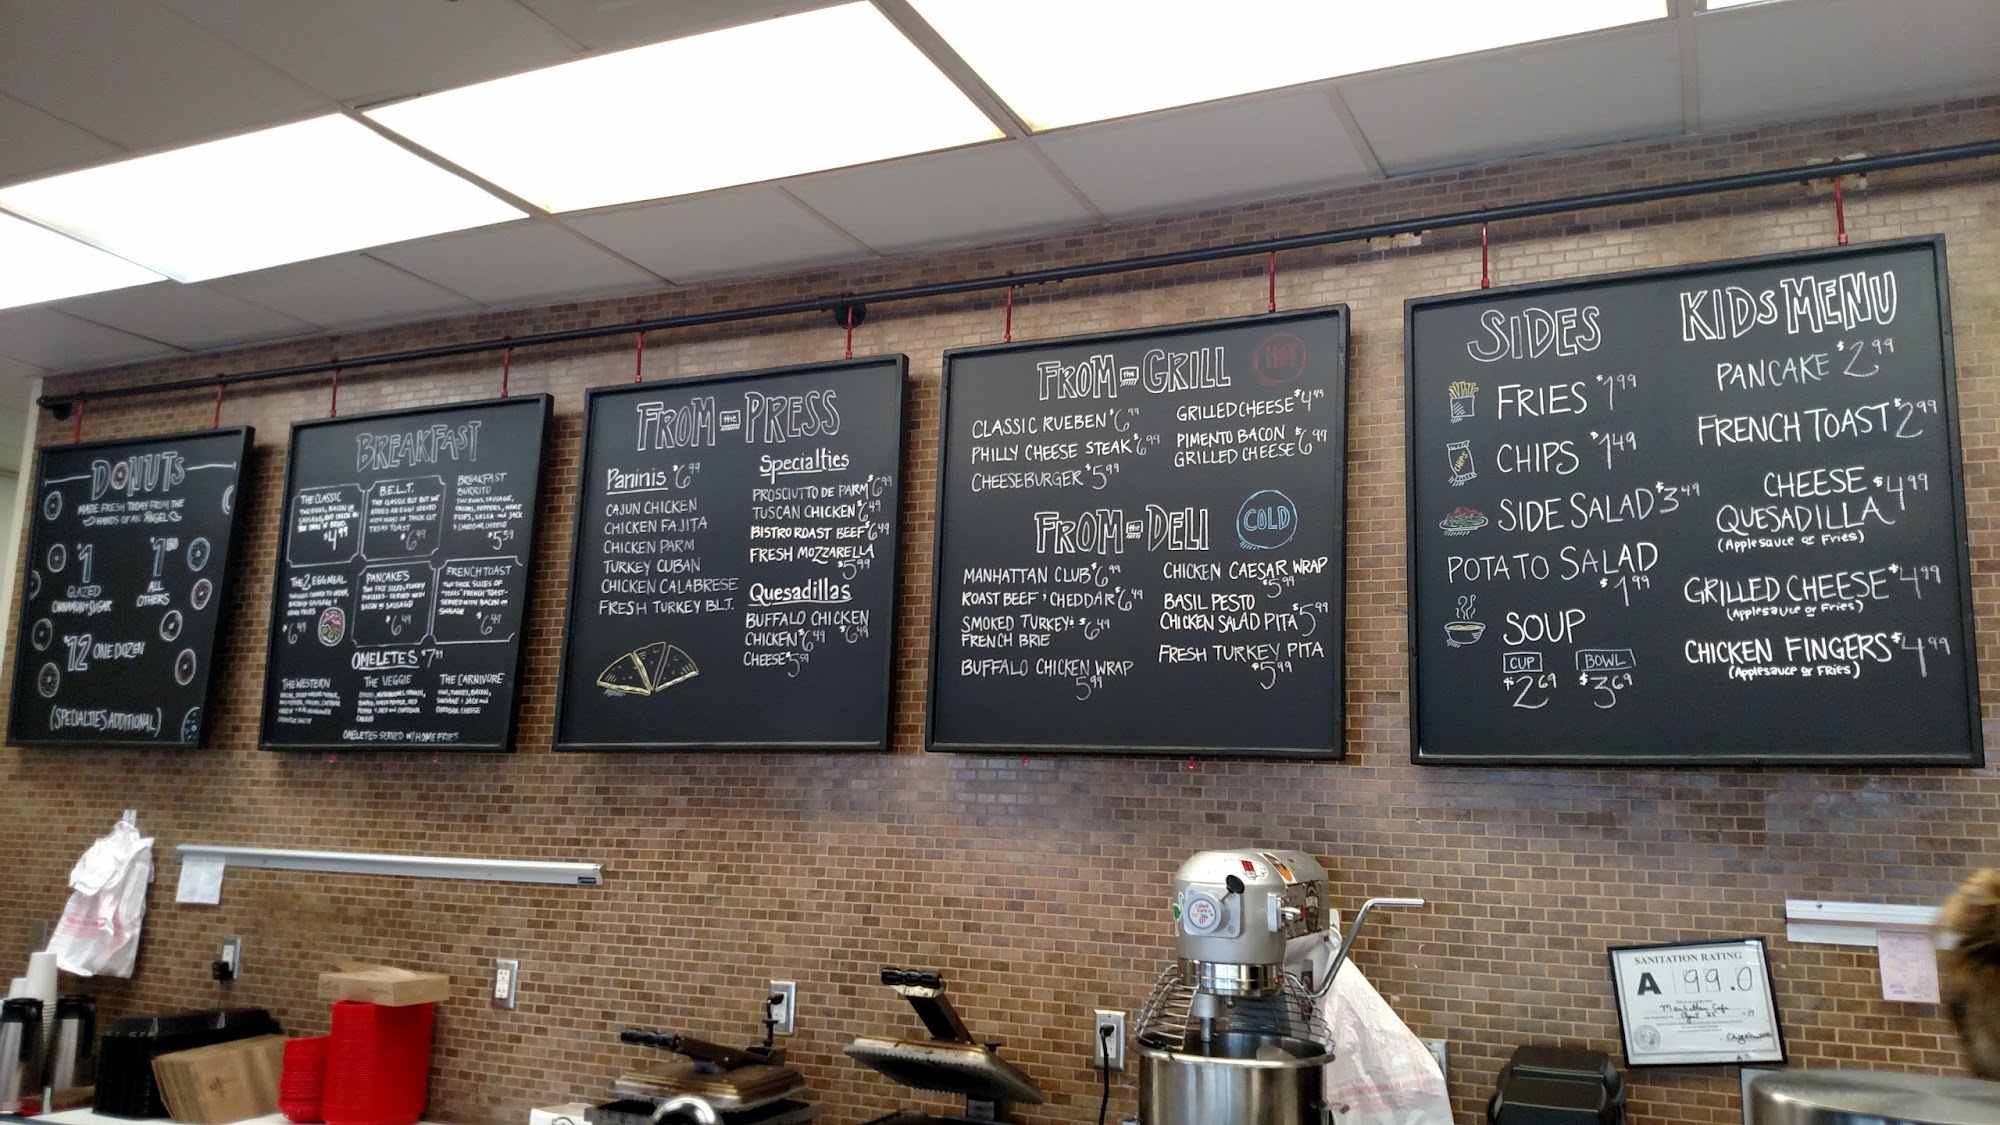 DONUTS
MADE FRESH TODAY FROM THE
HANDS OF AN ANGEL
$1
GLAZED
CINNAMON + SUGAR
ALL
OTHERS
$12 ONE DOZEN
(SPECIALTIES ADDITIONAL)
BREAKFAST
THE CLASSIC
TWO EGGS, BACON OR
SAUSAGE, AND CHEESE ON
$4.99
B.E.L.T.
THE CLASSIC BLT BUT WE
ADDED AN EGG! SERVED
WITH MAYO ON THICK CUT
TEXAS TOAST
$6.49
BREAKFAST
BURRITO
TWO EGGS, SAUSAGE,
ONIONS, PEPPERS, HOME
FRIES, SALSA AND JACK
& CHEDDAR CHEESE
$5.59
THE 2 EGG MEAL
TWO EGGS COOKED TO ORDER,
BACON OR SAUSAGE &
HOME FRIES
$6.49
PANCAKES
TWO FACE SIZED FLUFFY
PANCAKES - SERVED WITH
BACON OR SAUSAGE
$6.49
FRENCH TOAST
TWO THICK SLICES OF
"TEXAS" FRENCH TOAST -
SERVED WITH BACON OR
SAUSAGE
$6.49
OMELETES $7.99
THE WESTERN
THE VEGGIE
THE CARNIVORE
HAM, TURKEY, BACON,
SAUSAGE & JACK AND
CHEDDAR CHEESE
OMELETES SERVED W/ HOME FRIES
FROM THE PRESS
Paninis $6.99
CAJUN CHICKEN
CHICKEN FAJITA
CHICKEN PARM
TURKEY CUBAN
CHICKEN CALABRESE
FRESH TURKEY B.L.T.
Specialties
PROSCIUTTO DE PARM $6.99
TUSCAN CHICKEN $6.49
BISTRO ROAST BEEF $6.49
FRESH MOZZARELLA
$5.99
Quesadillas
BUFFALO CHICKEN
$6.49
CHICKEN $6.49
CHEESE $5.59
FROM THE GRILL
HOT
CLASSIC RUEBEN $6.99
PHILLY CHEESE STEAK $6.99
CHEESEBURGER $5.99
GRILLED CHEESE $4.49
PIMENTO BACON
GRILLED CHEESE $6.99
FROM THE DELI
COLD
MANHATTAN CLUB $6.99
ROAST BEEF & CHEDDAR $6.49
SMOKED TURKEY & $6.49
FRENCH BRIE
BUFFALO CHICKEN WRAP
5.99
CHICKEN CAESAR WRAP
$5.99
BASIL PESTO
CHICKEN SALAD PITA $5.99
FRESH TURKEY PITA
$5.99
SIDES
FRIES $1.99
CHIPS $1.49
SIDE SALAD $3.49
POTATO SALAD
$1.99
SOUP
CUP
$2.69
BOWL
$3.69
CHIPS
KIDS MENU
PANCAKE $2.99
FRENCH TOAST $2.99
CHEESE
QUESADILLA $4.99
(Applesauce or Fries)
GRILLED CHEESE $4.99
(Applesauce or Fries)
CHICKEN FINGERS $4.99
(Applesauce or Fries)
SANITATION RATING
A 99.0
Manhattan Cafe